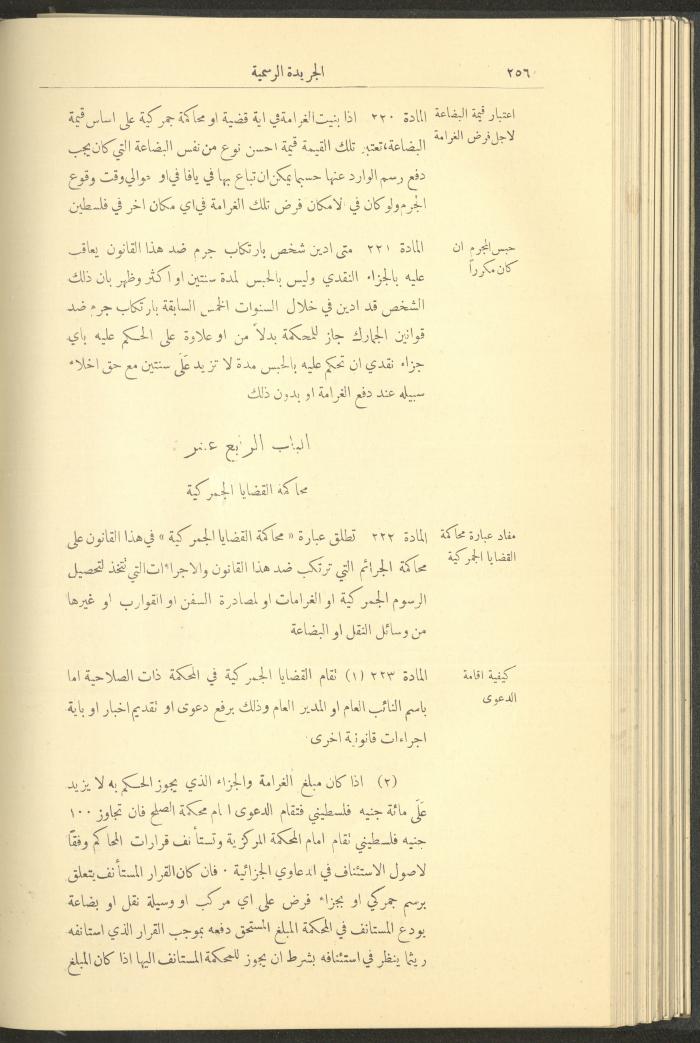 ٢٥٦
الجريدة الرسمية
اعتبار قيمة البضاعة
لاجل فرض الغرامة
المادة ٢٢٠ اذا بنيت الغرامة في اية قضية او محاكمة جمركية على اساس قيمة
البضاعة، تعتبر تلك القيمة قيمة احسن نوع من نفس البضاعة التي كان يجب
دفع رسم الوارد عنها حسبما يمكن ان تباع بها في يافا في او حوالي وقت وقوع
الجرم ولو كان في الامكان فرض تلك الغرامة في اي مكان اخر في فلسطين
حبس المجرم ان
كان مكرراً
المادة ٢٢١ متى ادين شخص بارتكاب جرم ضد هذا القانون يعاقب
عليه بالجزاء النقدي وليس بالحبس لمدة سنتين او اكثر وظهر بان ذلك
الشخص قد ادين في خلال السنوات الخمس السابقة بارتكاب جرم ضد
قوانين الجمارك جاز للمحكمة بدلاً من او علاوة على الحكم عليه باي
جزاء نقدي ان تحكم عليه بالحبس مدة لا تزيد عَلَى سنتين مع حق اخلاء
سبيله عند دفع الغرامة او بدون ذلك
الباب الرابع عشر
محاكمة القضايا الجمركية
مفاد عبارة محاكمة
القضايا الجمركية
المادة ٢٢٢ تطلق عبارة « محاكمة القضايا الجمركية » في هذا القانون على
محاكمة الجرائم التي ترتكب ضد هذا القانون والاجراءات التي تتخذ لتحصيل
الرسوم الجمركية او الغرامات او لمصادرة السفن او القوارب او غيرها
من وسائل النقل او البضاعة
كيفية اقامة
الدعوى
المادة ٢٢٣ (١) تقام القضايا الجمركية في المحكمة ذات الصلاحية اما
باسم النائب العام او المدير العام وذلك برفع دعوى او تقديم اخبار او باية
اجراءات قانونية اخرى
(٢) اذا كان مبلغ الغرامة والجزاء الذي يجوز الحكم به لا يزيد
عَلَى مائة جنيه فلسطيني فتقام الدعوى امام محكمة الصلح فان تجاوز ١٠٠
جنيه فلسطيني تقام امام المحكمة المركزية وتستأنف قرارات المحاكم وفقًا
لاصول الاستئناف في الدعاوي الجزائية . فان كان القرار المستأنف يتعلق
برسم جمركي او بجزاء فرض على اي مركب او وسيلة نقل او بضاعة
يودع المستانف في المحكمة المبلغ المستحق دفعه بموجب القرار الذي استانفه
ريثما ينظر في استئنافه بشرط ان يجوز للمحكمة المستانف اليها اذا كان المبلغ